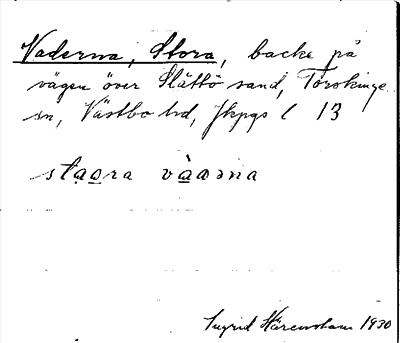 Vaderna, Stora, backe på
vägen över Slättö sand, Torskinge
sn, Västbo hd, Jkpgs l 13
sta̤o̲ra và̲aərna
Ingrid Härenstam 1930